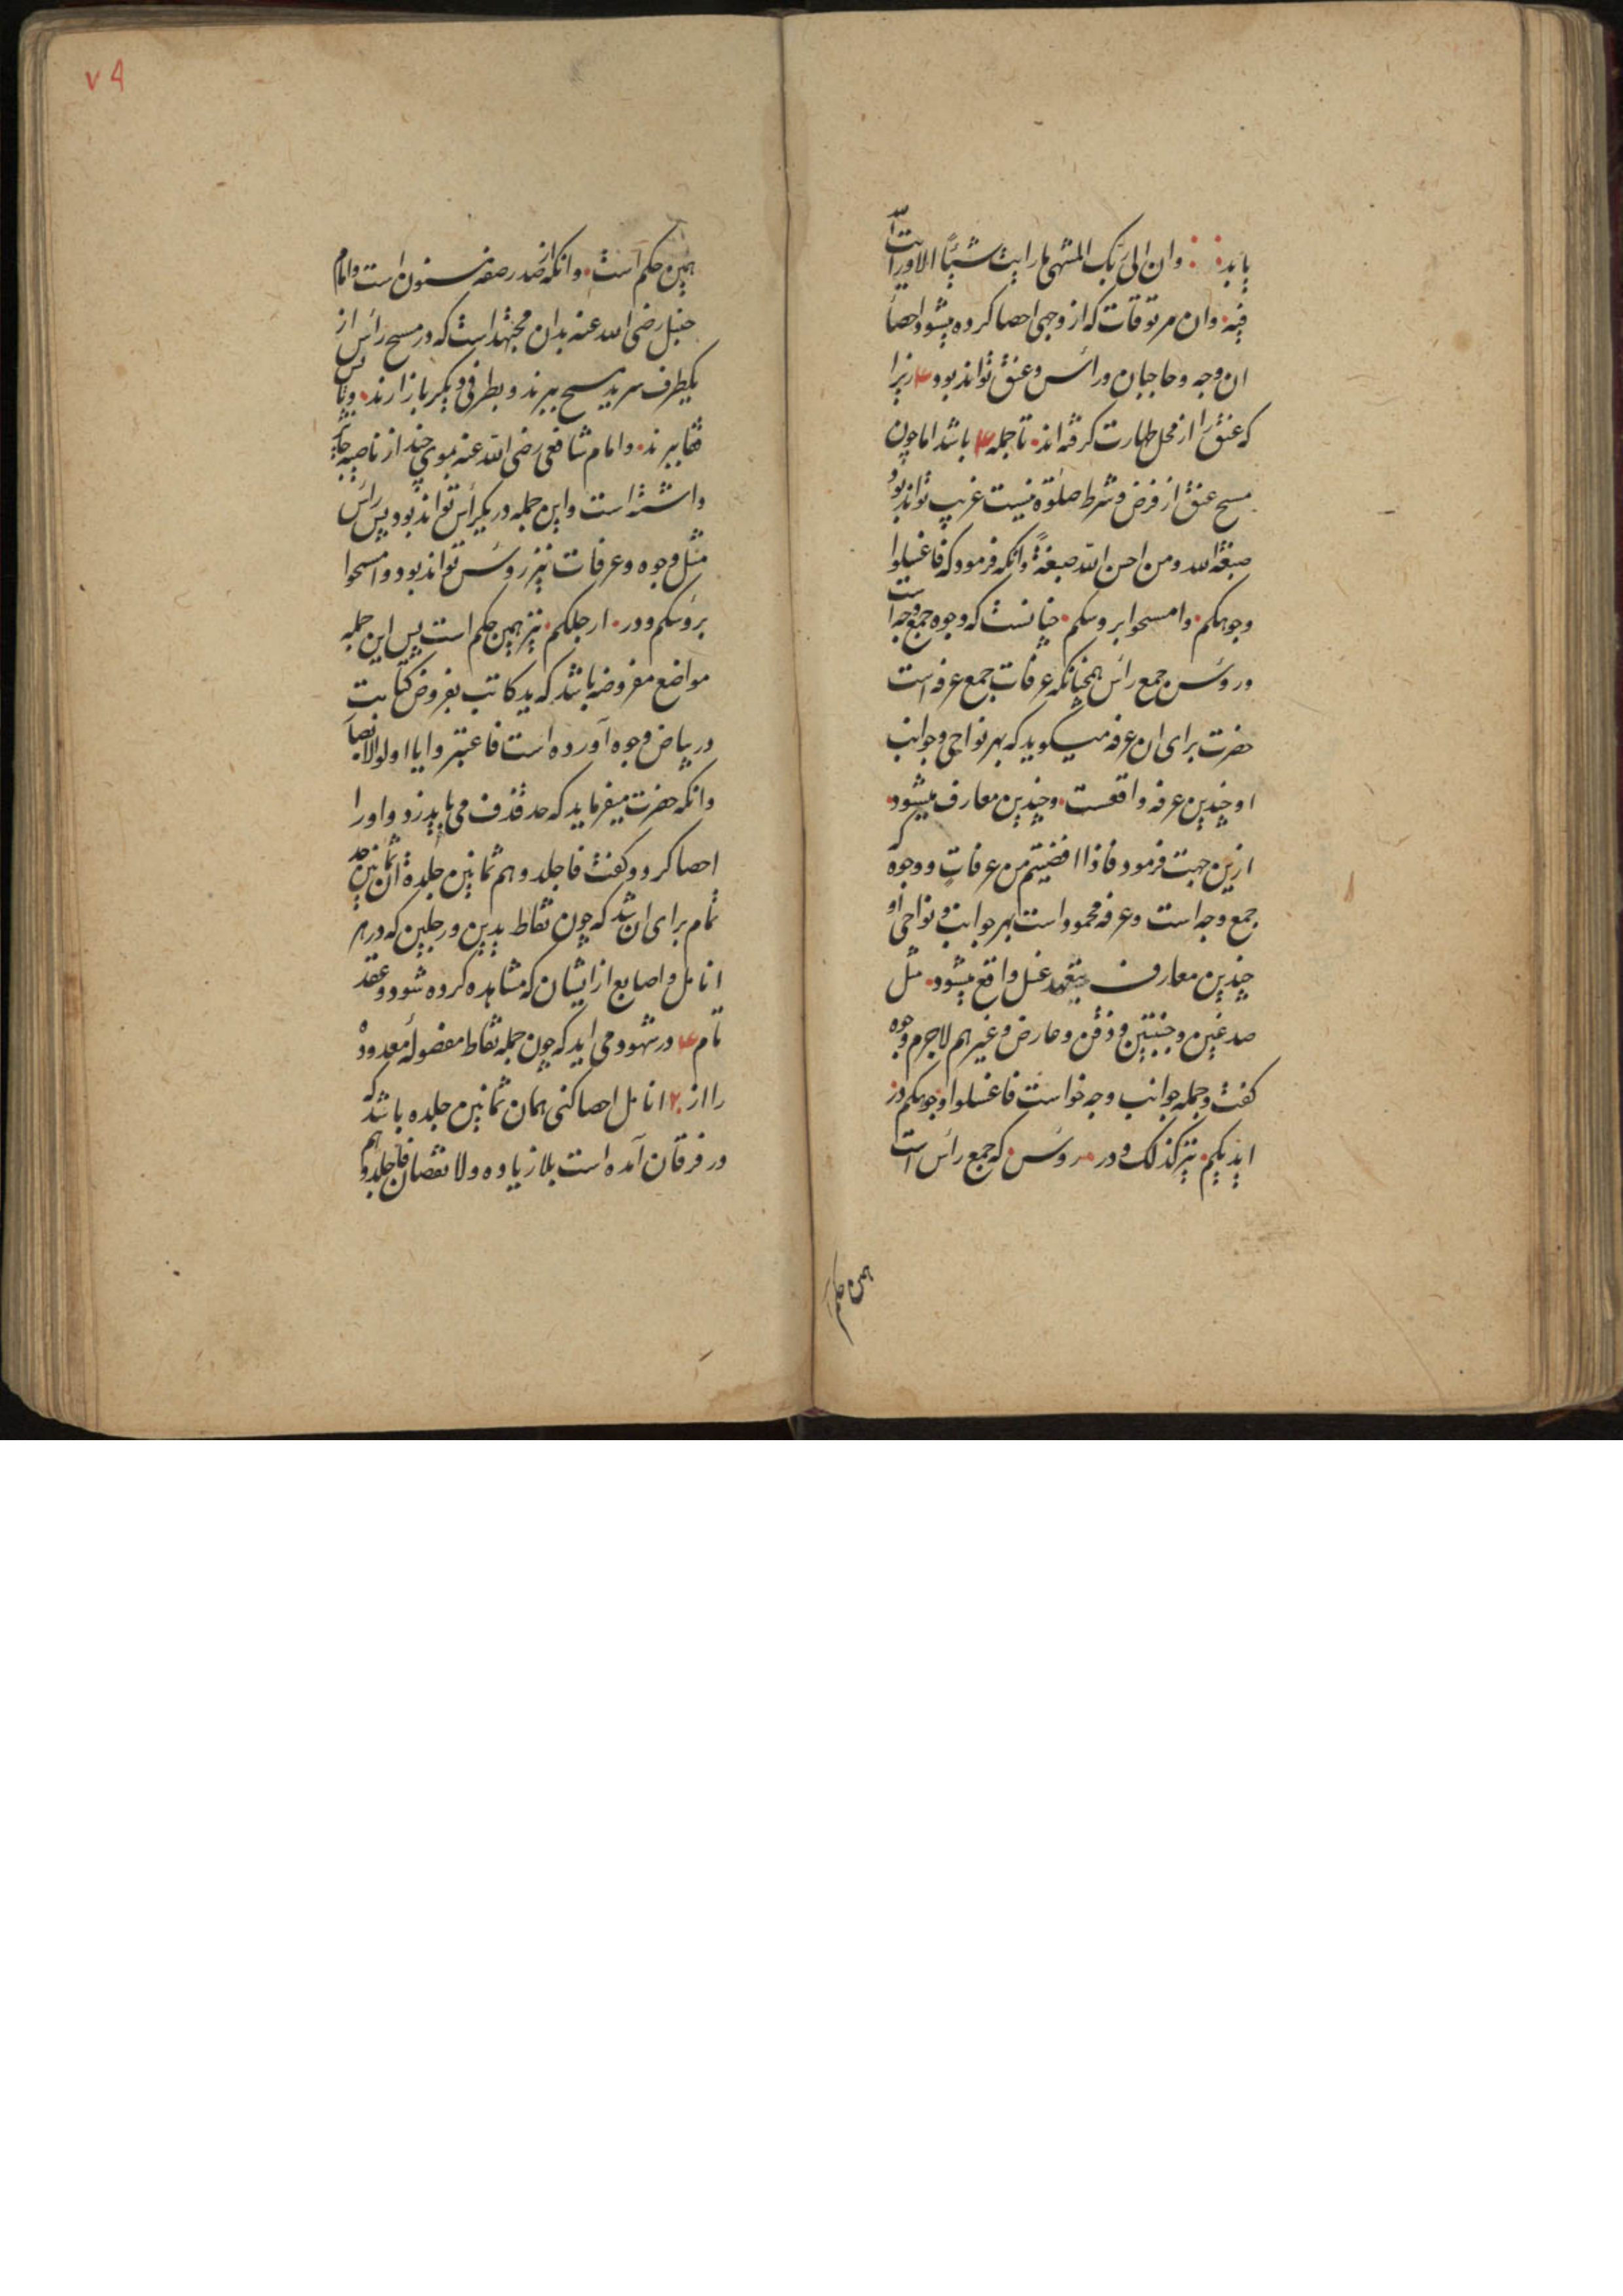 یابد وان الی ربک المنتهی ما رایت شیئا الا ورایت الله
فیه وان مرتوقات که از وجهی احصا کرده میشود احصا
ان وجه وحاجبان وراس وعنق تواند بود ۴ زیرا
که عنق را از محل طهارت گرفته اند تا جمله ۴ باشد اما چون
مسح عنق از فرض وشرط صلوة نیست غریب تواند بود
صبغة الله ومن احسن الله صبغة وانکه فرمود که فاغسلوا
وجوهکم وامسحوا بروسکم چنانست که وجوه جمع وجه است
وروس جمع راس همچنانکه عرفات جمع عرفه است
حضرت برای ان عرفه میگوید که بهر نواحی وجوانب
او چندین عرفه واقعست وچندین معارف میشود
ازین جهت فرمود فاذا افضیتم من عرفات ووجوه که
جمع وجه است وعرفه محمود است بهر جوانب ونواحی او
چندین معارف غسل واقع میشود مثل
صدغین وجنبتین وذقن وعارض وغیرهم لاجرم وجوه
گفت وجمله جوانب وجه خواست فاغسلوا وجوهکم ودر
ایدیکم نیز کذلک ودر روس که جمع راس است
همین حکم
۷۹
همین حکم است وانکه از صدر صفه مسنون است وامام
حنبل رضی الله عنه بدان مجتهد است که در مسح راس از
یکطرف سر ید مسح ببرند وبطرفی دیگر باز ارند وتا پس
قفا ببرند وامام شافعی رضی الله عنه موی چند از ناصیه جایز
داشته است واین جمله در یکراس تواند بود پس راس
مثل وجوه وعرفات نیز روس تواند بود وامسحوا
بروسکم ودر ارجلکم نیز همین حکم است پس این جمله
مواضع مفروضه باشد که ید کاتب بفروض کتابت
در بیاض وجوه آورده است فاعتبروا یا اولوالابصار
وانکه حضرت میفرماید که حد قذف می باید زد واورا
احصا کرد وگفت فاجلدوهم ثمانین جلدة ان ثمانین حد
تمام برای ان شد که چون نقاط یدین ورجلین که در هر
انامل واصابع از ایشان که مشاهده کرده شود وعقد
تام ۴ در شهود می اید که چون جمله نقاط مفصوله معدوده
را از ۲ انامل احصا کنی همان ثمانین جلده باشد که
در فرقان آمده است بلا زیاده ولا نقصان فاجلدوهم